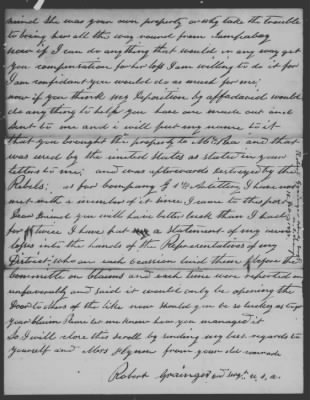 mind She was your own property or why take the trouble
to bring her all the way round from Tampabay
now if I can do anything that would in any way get
you compensation for her loss I am willing to do it for
I am confident you would do as much for me;
now if you think my Deposition by affadavid would
do anything to help you have one made out and
sent to me and i will put my name to it
that you brought the property to and that
was used by the united States as stated in your
letters to me; and was afterwards destroyed by the
Rebels; as for Company F 1st Artillery I have not
met with a member of it since I came to this part
Dear friend you will have better luck than I had
for twice I have put a Statement of my own
loses into the hands of the Representatives of my
District, who on each occasion laid them before the
Committee on Claims and each time were reported on
unfavorably and said it would only be opening the
Door to Mors of the like now should you be so lucky as to get
your claim Please let me know how you managed it
So I will close this scroll by sending my best regards to
yourself and Mors from your old comrade
Robert Grainger ord Sergt. U, S, A,